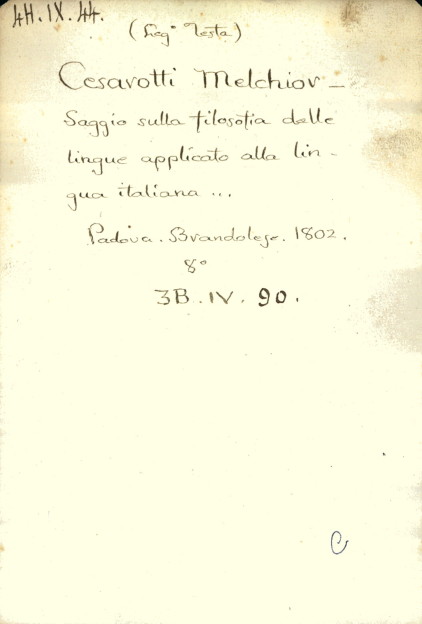 4H.IX.44.
(Leg° Testa)
Cesarotti Melchior –
Saggio sulla filosofia delle
lingue applicato alla lin-
gua italiana ...
Padova. Brandolese. 1802.
8°
3B.IV. 90.
C